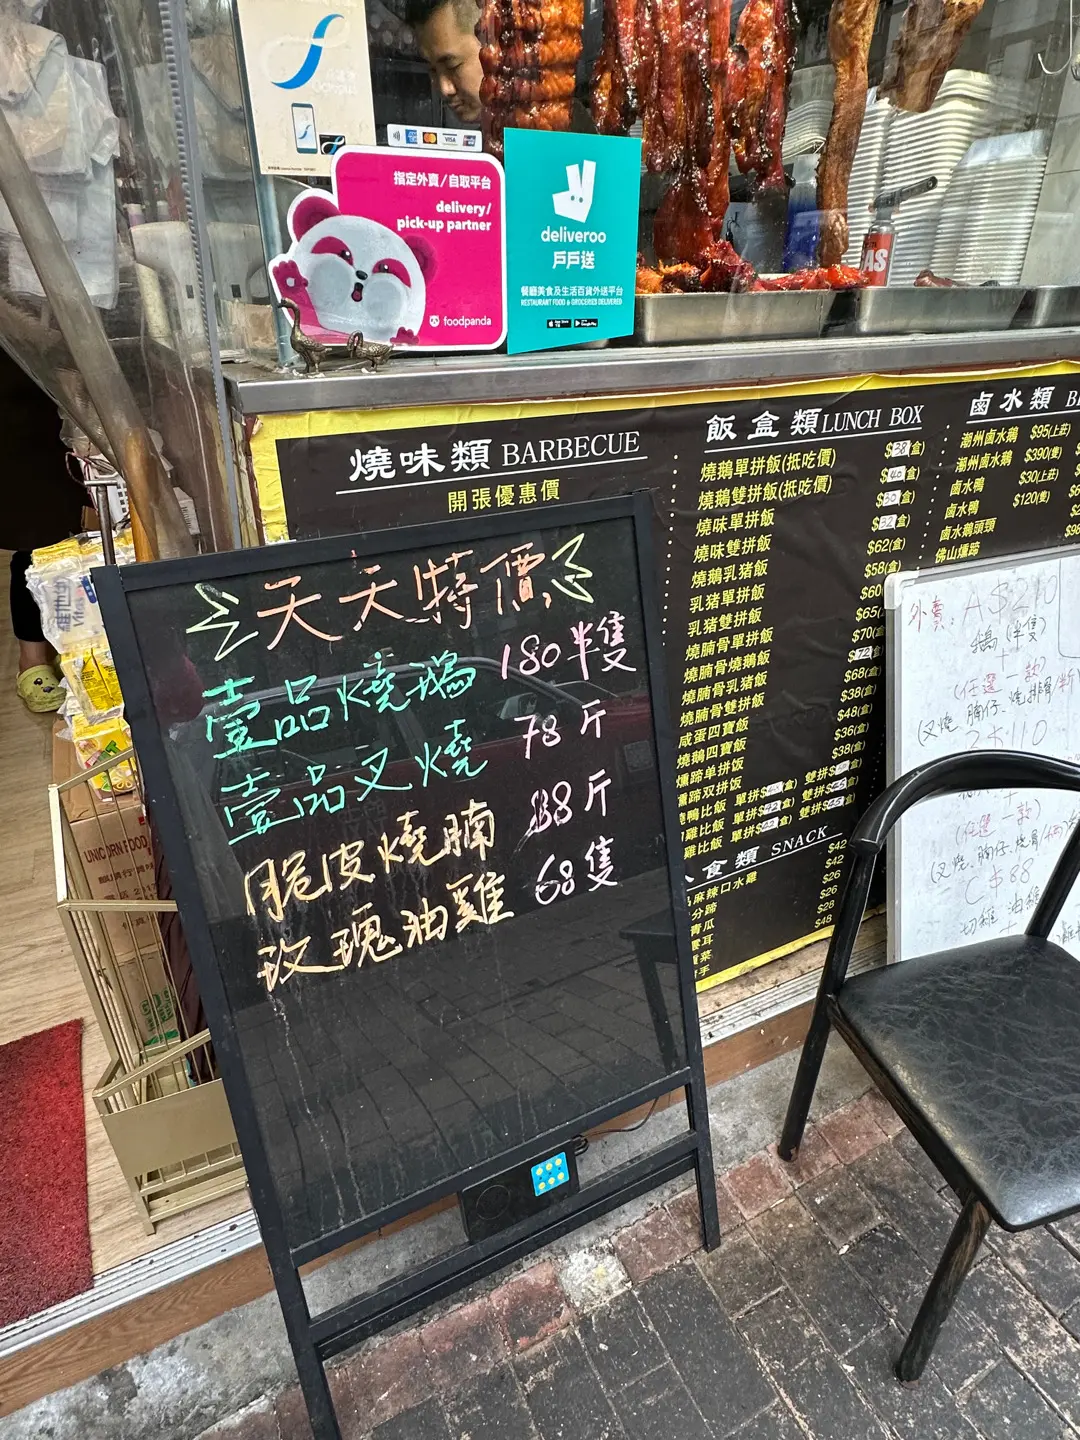 Octopus
指定外賣/自取平台
delivery/
pick-up partner
foodpanda
VISA
deliveroo
戶戶送
餐廳美食及生活百貨外送平台
RESTAURANT FOOD & GROCERIES DELIVERED
GAS
燒味類 BARBECUE
開張優惠價
天天特價
壹品燒鵝 180半隻
壹品叉燒 78斤
脆皮燒腩 斤
玫瑰油雞 68隻
飯盒類 LUNCH BOX
燒鵝單拼飯(抵吃價) $38(盒)
燒鵝雙拼飯(抵吃價) $40(盒)
燒味單拼飯
燒味雙拼飯 $32(盒)
燒鵝乳豬飯 $62(盒)
乳豬單拼飯 $58(盒)
乳豬雙拼飯 $60(
燒腩骨單拼飯 $65(
燒腩骨燒鵝飯 $70(盒
燒腩骨乳豬飯 $72(盒
燒腩骨雙拼飯 $68(盒)
咸蛋四寶飯 $38(盒)
燒鵝四寶飯 $48(盒)
燻蹄单拼饭 $36(盒)
燻蹄双拼饭 $38(盒)
鴨比飯 單拼 盒) 雙拼
雞比飯 單拼$42(盒) 雙拼
雞比飯 單拼 盒) 雙拼
食類 SNACK
麻辣口水雞 $42
分蹄 $42
青瓜 $26
雲耳 $26
菜 $28
手 $48
鹵水類
潮州鹵水鵝 $95(上莊)
潮州鹵水鵝 $390(隻)
鹵水鴨 $30(上莊)
鹵水鴨 $120(隻)
鹵水鵝頭頸
佛山燻蹄
外賣: A $210
鵝(半隻)
+
(任選一款)
(叉燒, 腩仔, 燒排骨
110
+
(任選一款)
(叉燒, 腩仔, 燒骨
C $88
切雞 油雞
UNICORN FOOD